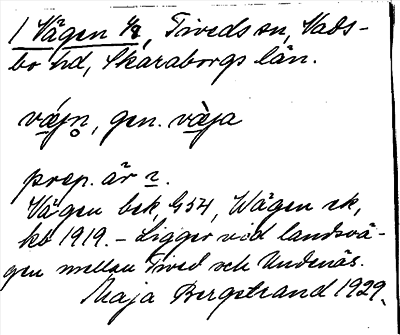 1 Vägen 1/8, Tiveds sn, Vads-
bo hd, Skaraborgs län.
væjn̥, gen. væ̀ja
prep. är 2.
Vägen bek, G54, Wägen ek,
kb 1919. – Ligger vid landsvä-
gen mellan Tived och Undenäs.
Maja Bergstrand 1929.